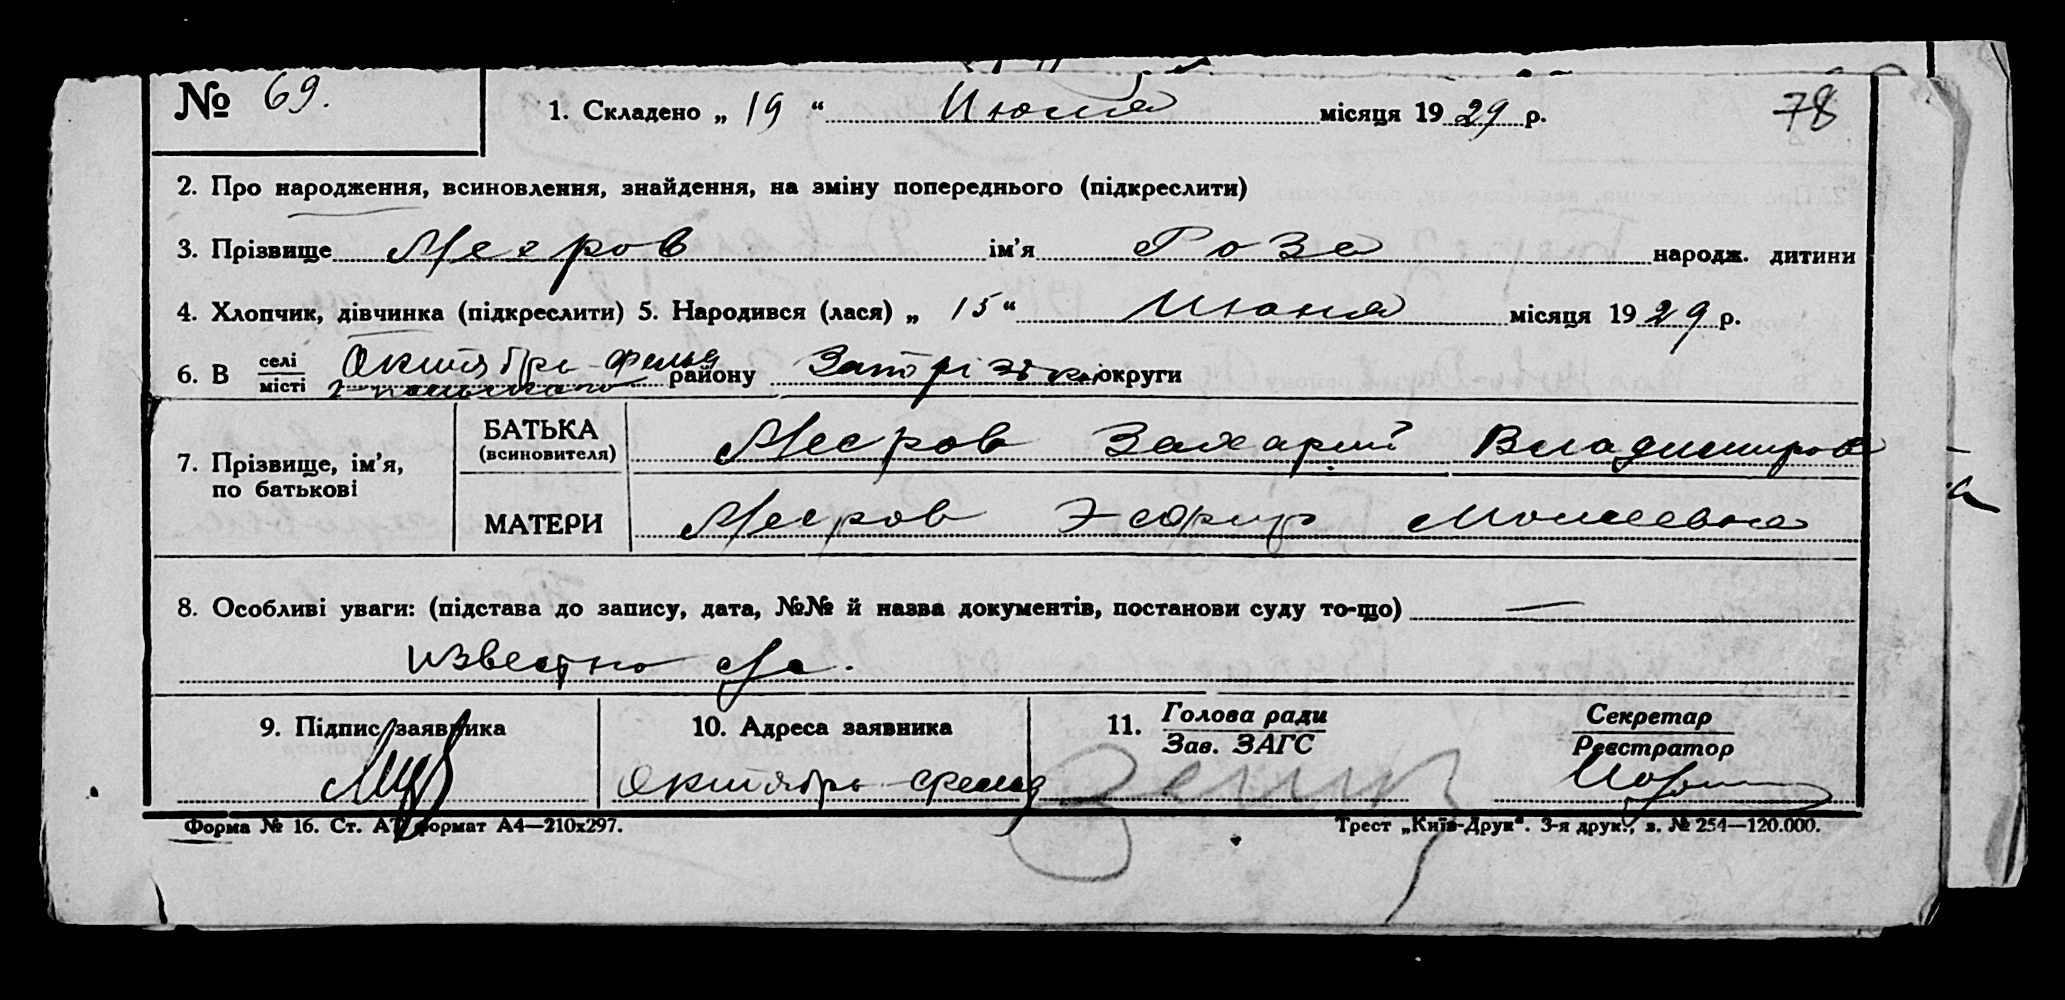 № 69. 1. Складено „ 19 “ Июня місяця 19 29 р. 78
2. Про народження, всиновлення, знайдення, на зміну попереднього (підкреслити)
3. Прізвище Мееров ім’я Роза народж. дитини
4. Хлопчик, дівчинка (підкреслити) 5. Народився (лася) „ 15 “ Июня місяця 19 29 р.
6. В селі місті Октябрь-фельд району Запорізької округи
7. Прізвище, ім’я, по батькові
БАТЬКА (всиновителя) Мееров Захарий Владимиров
МАТЕРИ Мееров Эсфирь Моисеевна
8. Особливі уваги: (підстава до запису, дата, №№ й назва документів, постанови суду то-що) —
известно
9. Підпис заявника 10. Адреса заявника 11. Голова ради Зав. ЗАГС Секретар Реєстратор
Октябрь фельд
Форма № 16. Ст. А7 формат А4—210х297. Трест „Київ-Друк“. 3-я друк., з. № 254—120.000.